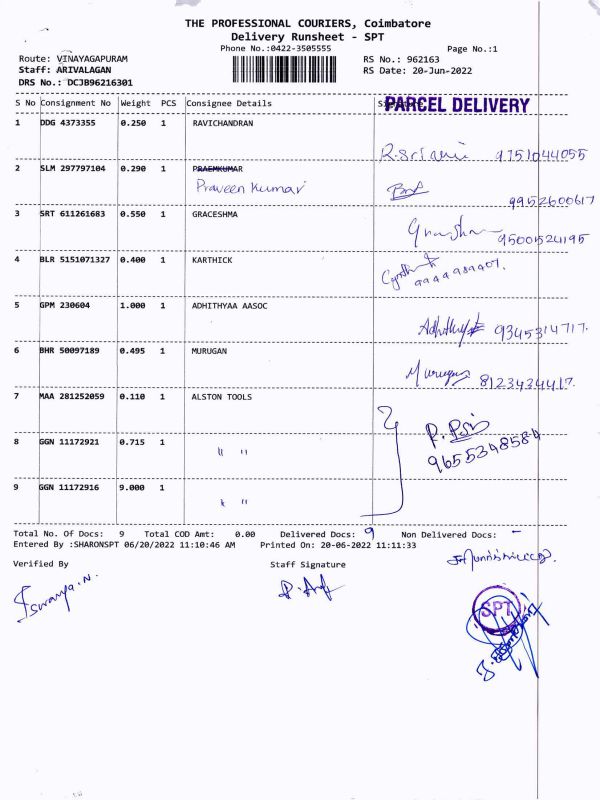 THE PROFESSIONAL COURIERS, Coimbatore
Delivery Runsheet - SPT
Phone No.:0422-3505555 Page No.:1
Route: VINAYAGAPURAM RS No.: 962163
Staff: ARIVALAGAN RS Date: 20-Jun-2022
DRS No.: DCJB96216301
S No Consignment No Weight PCS Consignee Details
PARCEL DELIVERY
1 DDG 4373355 0.250 1 RAVICHANDRAN
9751044055
2 SLM 297797104 0.290 1 PRAEMKUMAR
Praveen Kumar
9952600617
3 SRT 611261683 0.550 1 GRACESHMA
95001524195
4 BLR 5151071327 0.400 1 KARTHICK
5 GPM 230604 1.000 1 ADHITHYAA AASOC
9345314717.
6 BHR 50097189 0.495 1 MURUGAN
Murugan 8123434417.
7 MAA 281252059 0.110 1 ALSTON TOOLS
9655348584
8 GGN 11172921 0.715 1 " "
9 GGN 11172916 9.000 1 " "
Total No. Of Docs: 9 Total COD Amt: 0.00 Delivered Docs: 9 Non Delivered Docs: -
Entered By :SHARONSPT 06/20/2022 11:10:46 AM Printed On: 20-06-2022 11:11:33
Verified By Staff Signature
SPT